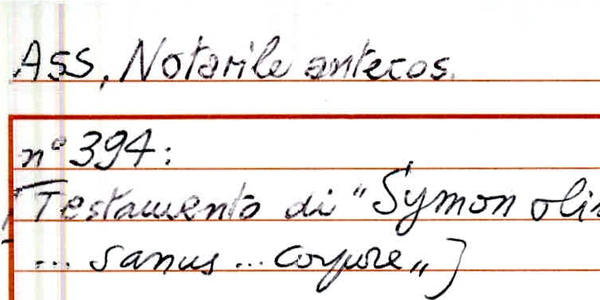 Ass. Notarile antecos.
n° 394:
[Testamento di "Symon olim
... sanus ... corpore„]